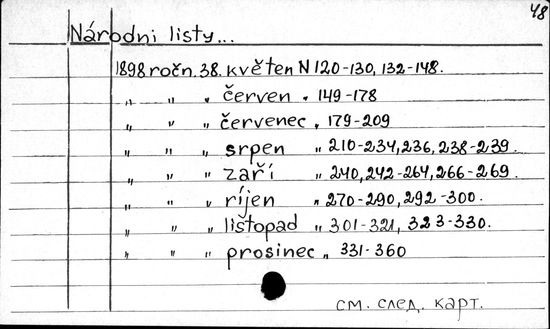 48
Národni listy...
1898 ročn. 38. květen N 120-130, 132-148.
„ „ „ červen „ 149-178
„ „ „ červenec „ 179-209
„ „ „ srpen „ 210-234, 236, 238-239.
„ „ „ září „ 240, 242-264, 266-269.
„ „ „ ríjen „ 270-290, 292-300.
„ „ „ listopad „ 301-321, 323-330.
„ „ „ prosinec „ 331-360
см. след. карт.